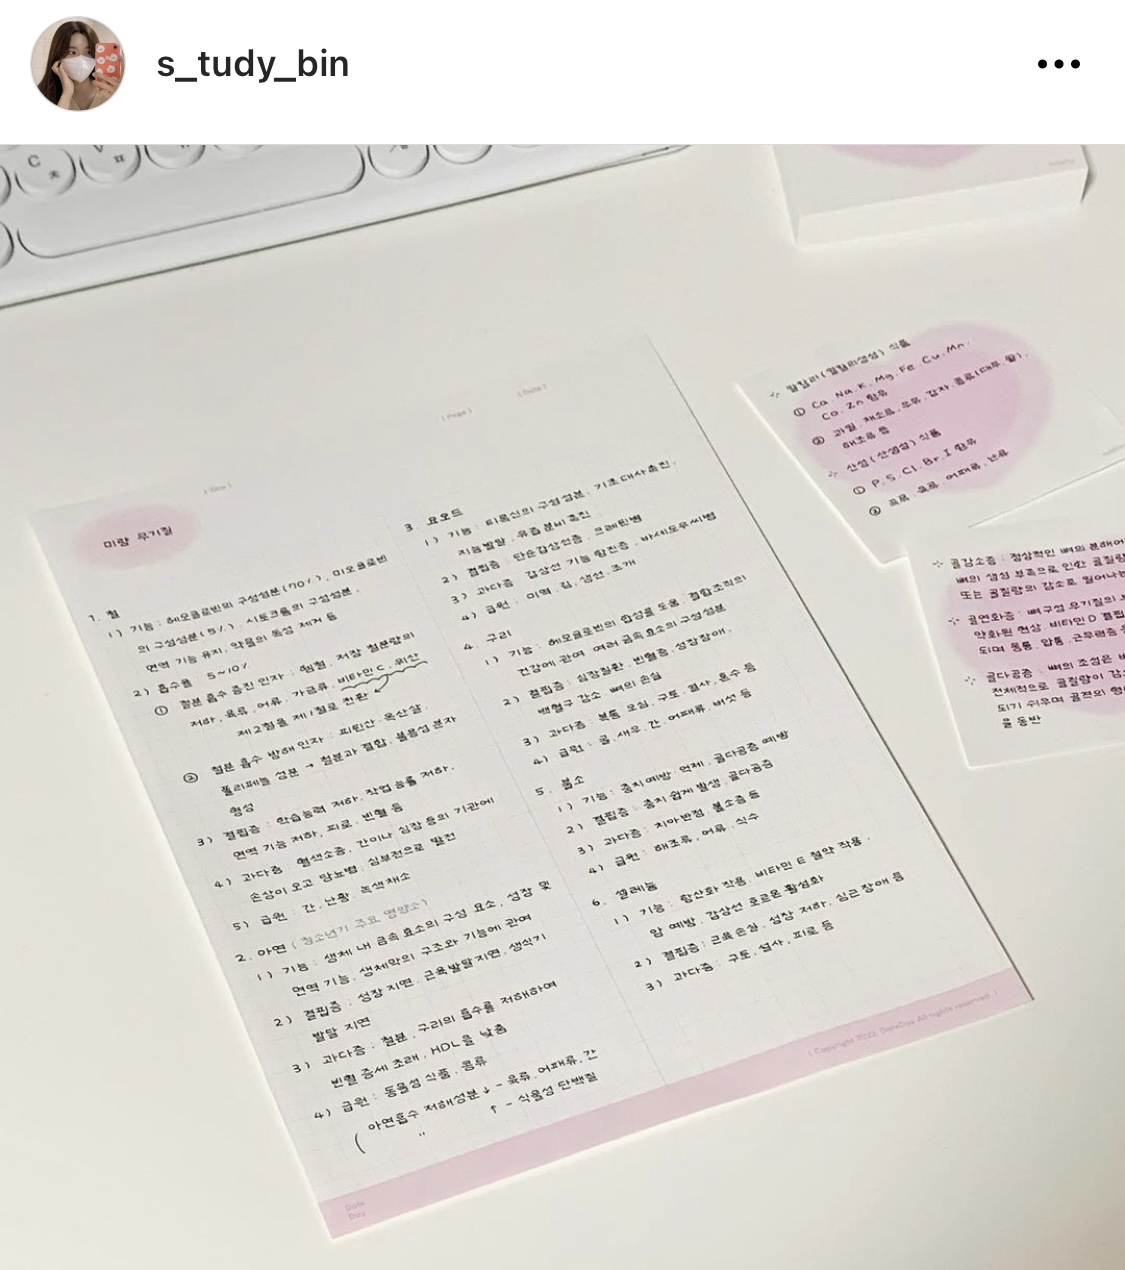 s_tudy_bin
C
ㅊ
V
ㅍ
(Page)
(Date)
(Title)
미량 무기질
1. 철
1) 기능 : 헤모글로빈의 구성성분(70%), 미오글로빈
의 구성성분(5%), 시토크롬의 구성성분,
면역 기능 유지, 약물의 독성 제거 등
2) 흡수율 5~10%
① 철분 흡수 증진 인자 : 헴철, 저장 철분량의
저하, 육류, 어류, 가금류, 비타민 C, 위산
제2철을 제1철로 전환
② 철분 흡수 방해 인자 : 피틴산, 옥산살,
폴리페놀 성분 → 철분과 결합, 불용성 분자
형성
3) 결핍증 : 학습능력 저하, 작업 능률 저하,
면역 기능 저하, 피로, 빈혈 등
4) 과다증 혈색소증, 간이나 심장 등의 기관에
손상이 오고 당뇨병, 심부전으로 발전
5) 급원 : 간, 난황, 녹색채소
2. 아연 (청소년기 주요 영양소)
1) 기능 : 생체 내 금속 효소의 구성 요소, 성장 및
면역 기능, 생체막의 구조와 기능에 관여
2) 결핍증 : 성장 지연, 근육발달지연, 생식기
발달 지연
3) 과다증 : 철분, 구리의 흡수를 저해하여
빈혈 증세 초래, HDL을 낮춤
4) 급원 : 동물성 식품, 콩류
( 아연흡수 저해성분 ↓ - 육류, 어패류, 간
" ↑ - 식물성 단백질
3. 요오드
1) 기능 : 티록신의 구성성분, 기초대사촉진,
지능발달, 유즙 분비 촉진
2) 결핍증 : 단순갑상선종, 크레틴병
3) 과다증 갑상선 기능 항진증, 바세도우씨병
4) 급원 : 미역, 김, 생선, 조개
4. 구리
1) 기능 : 헤모글로빈의 합성를 도움, 결합조직의
건강에 관여 여러 금속 효소의 구성성분
2) 결핍증 : 심장질환, 빈혈증, 성장장애,
백혈구 감소 뼈의 손실
3) 과다증 : 복통 오심, 구토, 설사, 혼수 등
4) 급원 : 굴, 새우, 간, 어패류, 버섯 등
5. 불소
1) 기능 : 충치예방, 억제, 골다공증 예방
2) 결핍증 : 충치 쉽게 발생, 골다공증
3) 과다증 : 치아반점, 불소증 등
4) 급원 : 해조류, 어류, 식수
6. 셀레늄
1) 기능 : 항산화 작용, 비타민 E 절약 작용,
암 예방, 갑상선 호르몬 활성화
2) 결핍증 : 근육손실, 성장 저하, 심근 장애 등
3) 과다증 : 구토, 설사, 피로 등
( Copyright 2022. DateDay All rights reserved. )
Date
Day
알칼리(알칼리생성) 식품
① Ca. Na. K. Mg. Fe. Cu. Mn.
Co. Zn 함유
② 과일, 채소류, 우유, 감자, 콩류(대두, 팥),
해조류 등
산성(산생성) 식품
① P. S. Cl. Br. I 함유
② 곡류, 육류, 어패류, 난류
골감소증 : 정상적인 뼈의 분해
뼈의 생성 부족으로 인한 골질량
또는 골질량의 감소로 일어나는
골연화증 : 뼈구성 무기질의
약화된 현상, 비타민 D 결핍
되며 통통, 압통, 근무력증
골다공증 : 뼈의 조성은
전체적으로 골질량이 감소
되기 쉬우며 골절의
을 동반